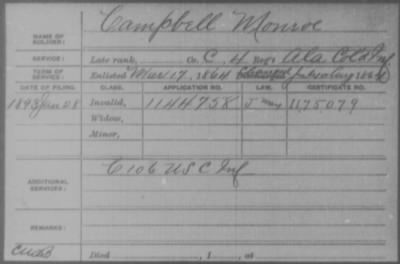 Campbell Monroe
NAME OF SOLDIER:
SERVICE: Late rank, Co. C, 4 Reg't Ala Cold Inf
TERM OF SERVICE: Enlisted Mar 17, 1864
DATE OF FILING. CLASS. APPLICATION NO. LAW. CERTIFICATE NO.
1893 Jan 28 Invalid, 1144758 1175079
Widow,
Minor,
C 106 U S C Inf
ADDITIONAL SERVICES:
REMARKS:
Died , 1 , at